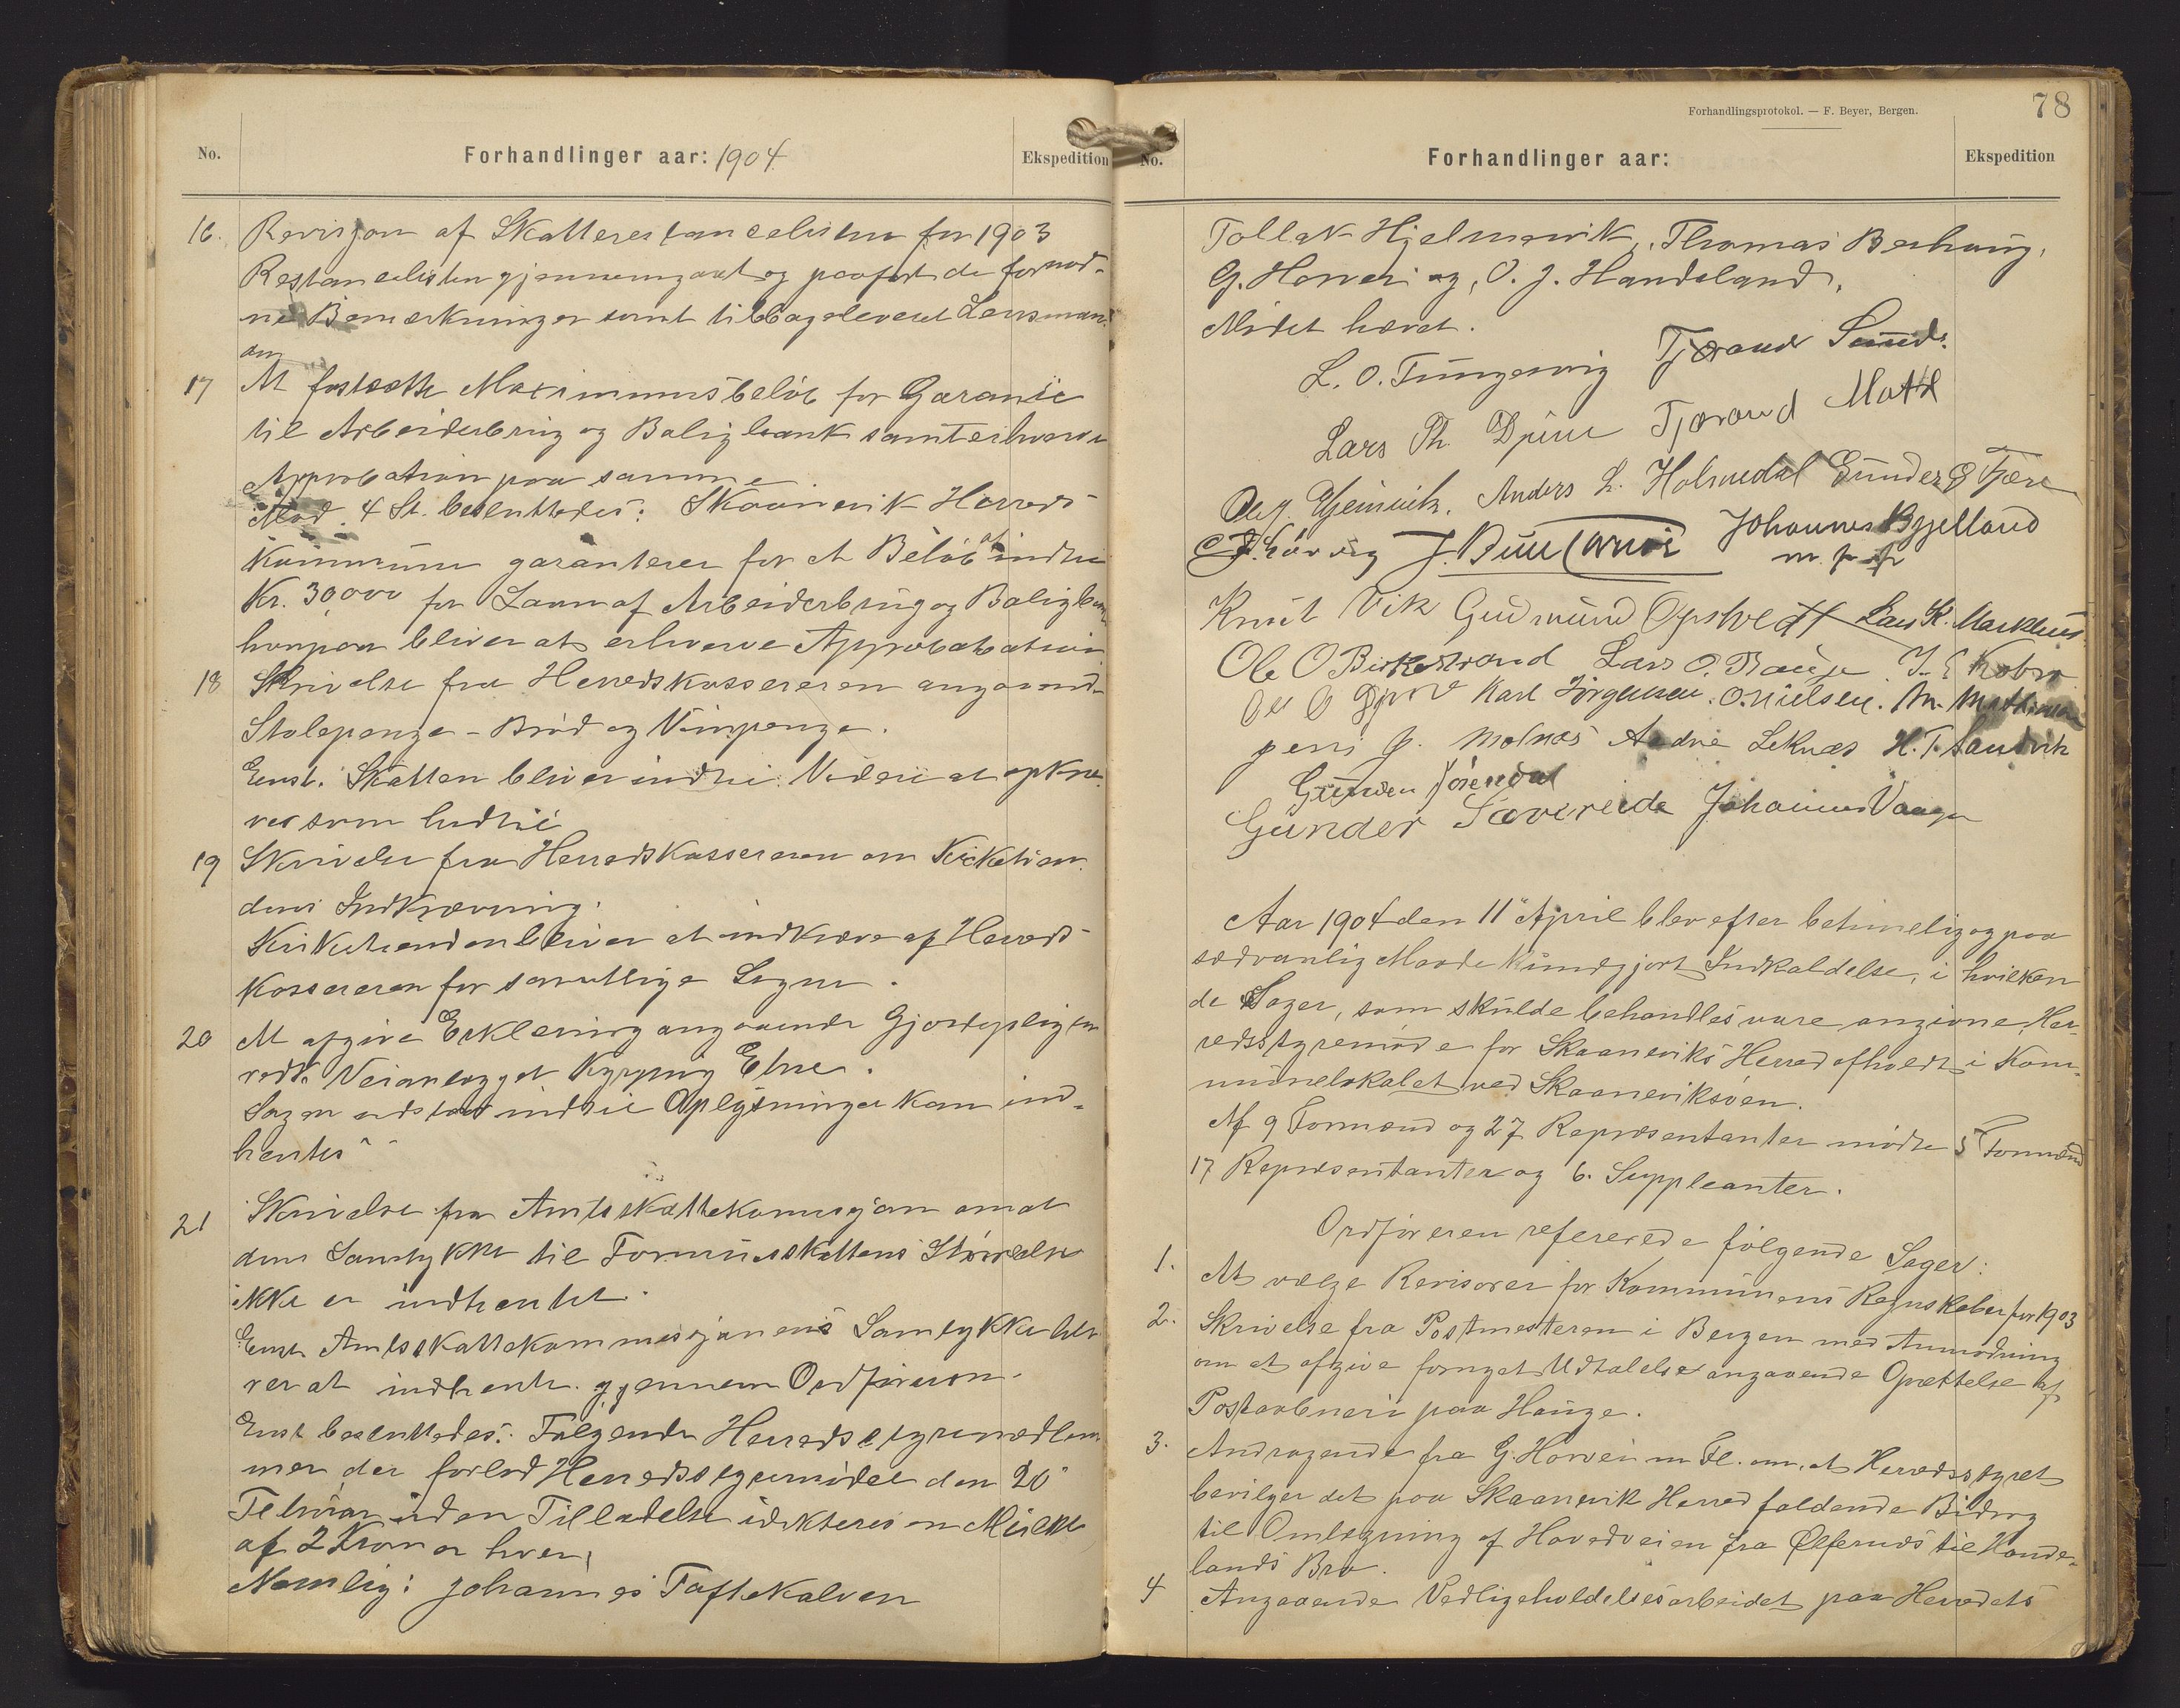 No.
Forhandlinger aar: 1904
Ekspedition
16. Revisjon af Skatterestancelisten for 1903
Restancelisten gjennemgaaet og paaført de fornød-
ne Bemærkninger samt tilbageleveret Lensman-
den
17 At fastsætte Maximumsbeløb for Garantie
til Arbeiderbrug og Boligbank samt erhverve
Approbation paa samme
Mod 4 St. besluttedes: Skaanevik Herreds
Kommune garanterer for et Beløb af indtil
Kr. 30,000 for Laan af Arbeiderbrug og Boligbank
hvorpaa bliver at erhverve Approbation
18 Skrivelse fra Herredskassereren angaaende
Stolepenge - Brød og Vinpenge.
Enst. Skatten bliver indtil Videre at opkræ-
ves som hidtil
19 Skrivelse fra Herredskassereren om Kirketien-
dens Indkrævning.
Kirketienden bliver at indkræve af Herreds-
kassereren for samtlige Sogne.
20 At afgive Erklæring angaaende Gjerdepligten
ved Veianlægget Kyrping Etne.
Sagen udstaar indtil Oplysninger kan ind-
hentes
21 Skrivelse fra Amtsskattekomisjon om at
dens Samtykke til Formuesskattens Størrelse
ikke er indhentet.
Enst. Amtsskattekommissjonens Samtykke bli-
ver at indhente gjennem Ordføreren.
Enst besluttedes: Følgende Herredsstyremedlem-
mer der forlod Herredsstyremødet den 20
Februar uden Tilladelse idikteres en Mulkt
af 2 Kroner hver,
Nemlig: Johannes Toftekalven
Forhandlingsprotokol. — F. Beyer, Bergen.
78
No.
Forhandlinger aar:
Ekspedition
Tollak Hjelmervik, Thomas Berhaug,
G. Horvei og, O. J. Handeland,
Mødet hævet.
L. O. Tungesvig Tjærand Sunde
Lars Th. Tjærand Matre
Anders L. Holmedal Gunder
J. Johannes Bjelland
m. p. p
Knut Vik Gudmund Opshvedt Lars K. Markhus
Ole O Birkestrand Lars O.
Karl Jørgensen. O. Nielsen. M. Mathiesen
Jens J. Molnæs Andre Leknæs H. T. Sandvik
Gunder
Gunder Sævereide Johannes Vaage
Aar 1904 den 11 April blev efter betimelig og paa
sædvanlig Maade kundgjort Indkaldelse, i hvilken
de Sager, som skulde behandles vare angivne, Her-
redsstyremøde for Skaaneviks Herred afholdt i Kom-
munelokalet ved Skaaneviksøen.
Af 9 Formænd og 27 Repræsentanter mødte 5 Formænd
17 Repræsentanter og 6. Suppleanter.
Ordføreren refererede følgende Sager:
1. At vælge Revisorer for Kommunens Regnskaber for 1903
2. Skrivelse fra Postmesteren i Bergen med Anmodning
om at afgive fornyet Udtalelse angaaende Oprettelse af
Postaabneri paa Hauge.
3. Andragende fra G. Horvei m Fl. om, at Herredsstyret
bevilger det paa Skaanevik Herred faldende Bidrag
til Omlægning af Hovedveien fra Ølfernæs til Hande-
lands Bro.
4 Angaaende Vedligeholdelsesarbeidet paa Herredets